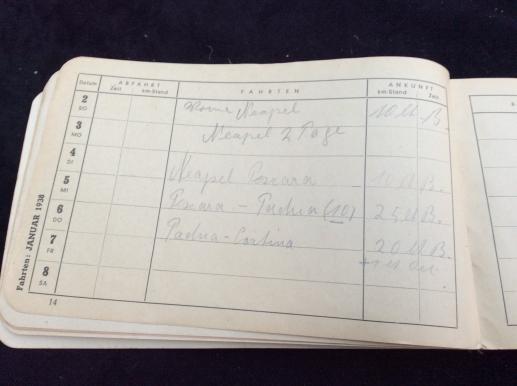 Datum ABFAHRT FAHRTEN ANKUNFT
Zeit km-Stand km-Stand Zeit
2 SO Roma Neapel 10 M-B.
3 MO Neapel 2 Tage
4 DI
5 MI Neapel Pescara 10 M B.
6 DO Pescara - Padua (10) 25 M B.
7 FR Padua-Cortina 20 M B.
8 SA
Fahrten: JANUAR 1938
14